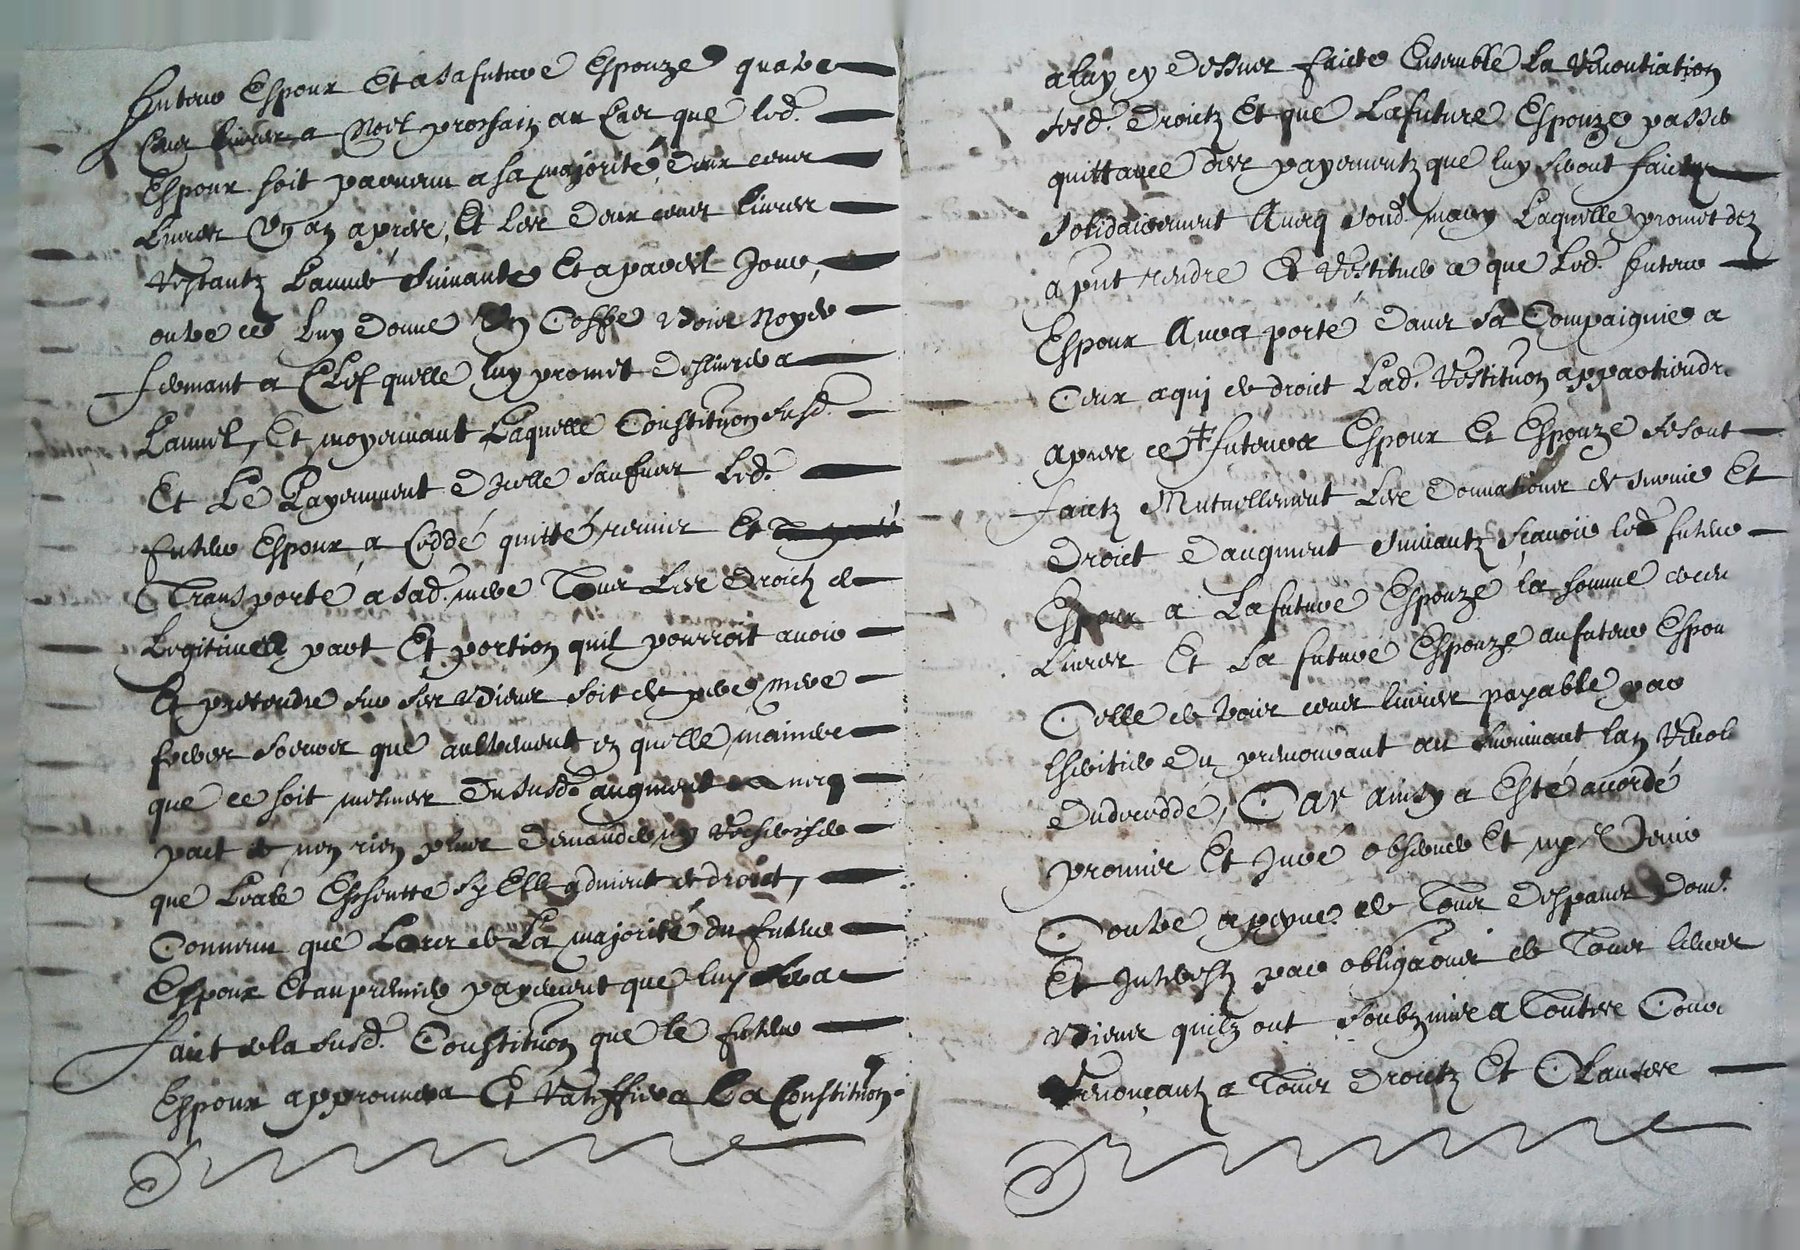 futeur Espoux Et a sa future Espouze quatre
Cens livres a Noel prochain au Cas que led.
Espoux soit parvenu a sa majorité, deux cens
Livres Un an apres, Et les deux cens livres
Restantz Lannée Suivante Et a pareil Jour,
outre ce Luy donne Un Coffre Bois Noyer
fermant a Clef quelle luy promet deslivrer a
Lanuel, Et moyennant Laquelle Constituon susd.
Et Le Payemment dicelle Led.
futeur Espoux a Ceddé quitté remis Et
Transporté a sad. mere Tous Les Droictz de
Legitimes part Et portion quil pourroit avoir
Et pretendre sur ses Biens soit de pere mere
freres soeurs que aultrement en quelle maniere
que ce soit mesmes du susd. augment
pact de nen rien plus demander ny Rechercher
que Leale Escheutte sy Elle advient de droict,
Convenu que Lors de La majorité du futeur
Espoux Et au premier payement que luy sera
faict de la susd. Constituon que le futeur
Espoux approuvera Et Ratiffiera La Constituon
a luy cy dessus faicte Ensemble La Renontiation
sesd. Droictz Et que La future Espouze passera
quittance des payementz que luy seront faictz
solidairement Avecq sond. mary Laquelle promet dez
a pnt rendre Et Restituer ce que Led. futeur
Espoux Aura porté dans sa Compaignie a
Ceux a qui de droict Lad. Restituon appartiendra
apres ce futeurs Espoux Et Espouze se sont
faictz Mutuellement Les Donnations de survie Et
Droict d'augment suivantz scavoir led futeur
Espoux a La future Espouze la somme de
Livres Et La future Espouze au futeur Espoux
Celle de trois cens livres payable par
Lheritier du premourant au survivant lan Revolu
du deceddé, Car ainsy a Esté accordé
promis Et Juré observer Et ny Venir
Contre a peyne de Tous despans dom.
Et Interestz par obligaons de Tous leurs
Biens quilz ont soubzmis a Toutes Cours
Renonçantz a Tous Droictz Et Clauses